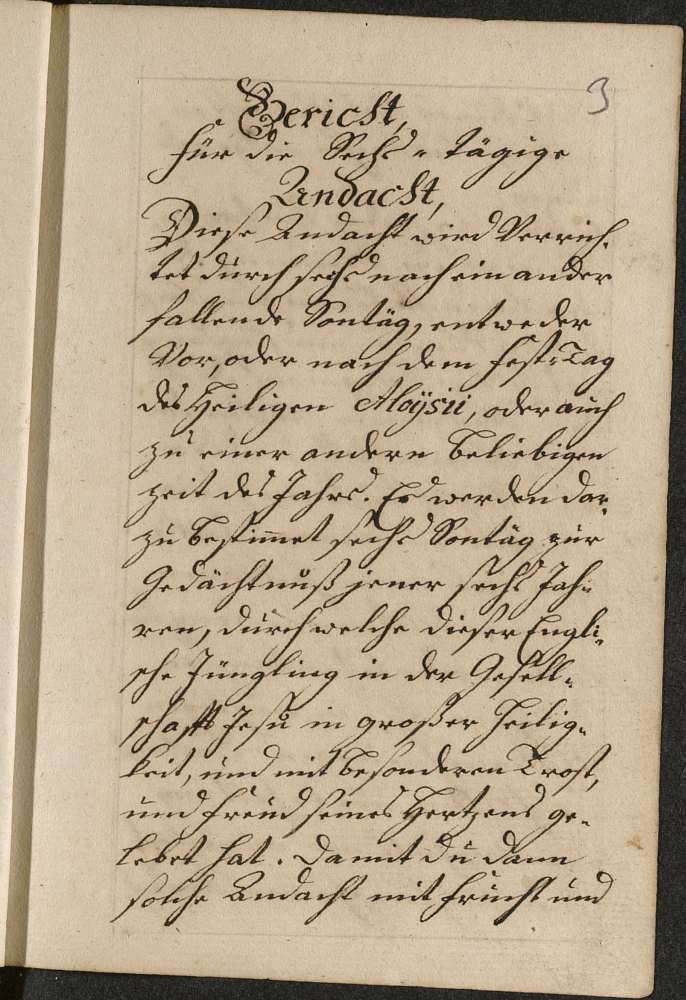 3
Bericht,
für die Sechs-tägige
Andacht,
Diese Andacht wird Verrich-
tet durch sechs nach ein ander
fallende Sontäg, entweder
Vor, oder nach dem fest-Tag
des Heiligen Aloÿsii, oder auch
zu einer andern beliebigen
zeit des Jahrs. Es werden dar-
zu bestimet sechs Sontäg zur
Gedächtnuß jener sechs Jah-
ren, durch welche dieser Engli-
sche Jüngling in der Gesell-
schafft Jesu in großer Heilig-
keit, und mit besonderen Trost,
und freüd seines Hertzens ge-
lebet hat. Damit du dann
solche Andacht mit frucht und